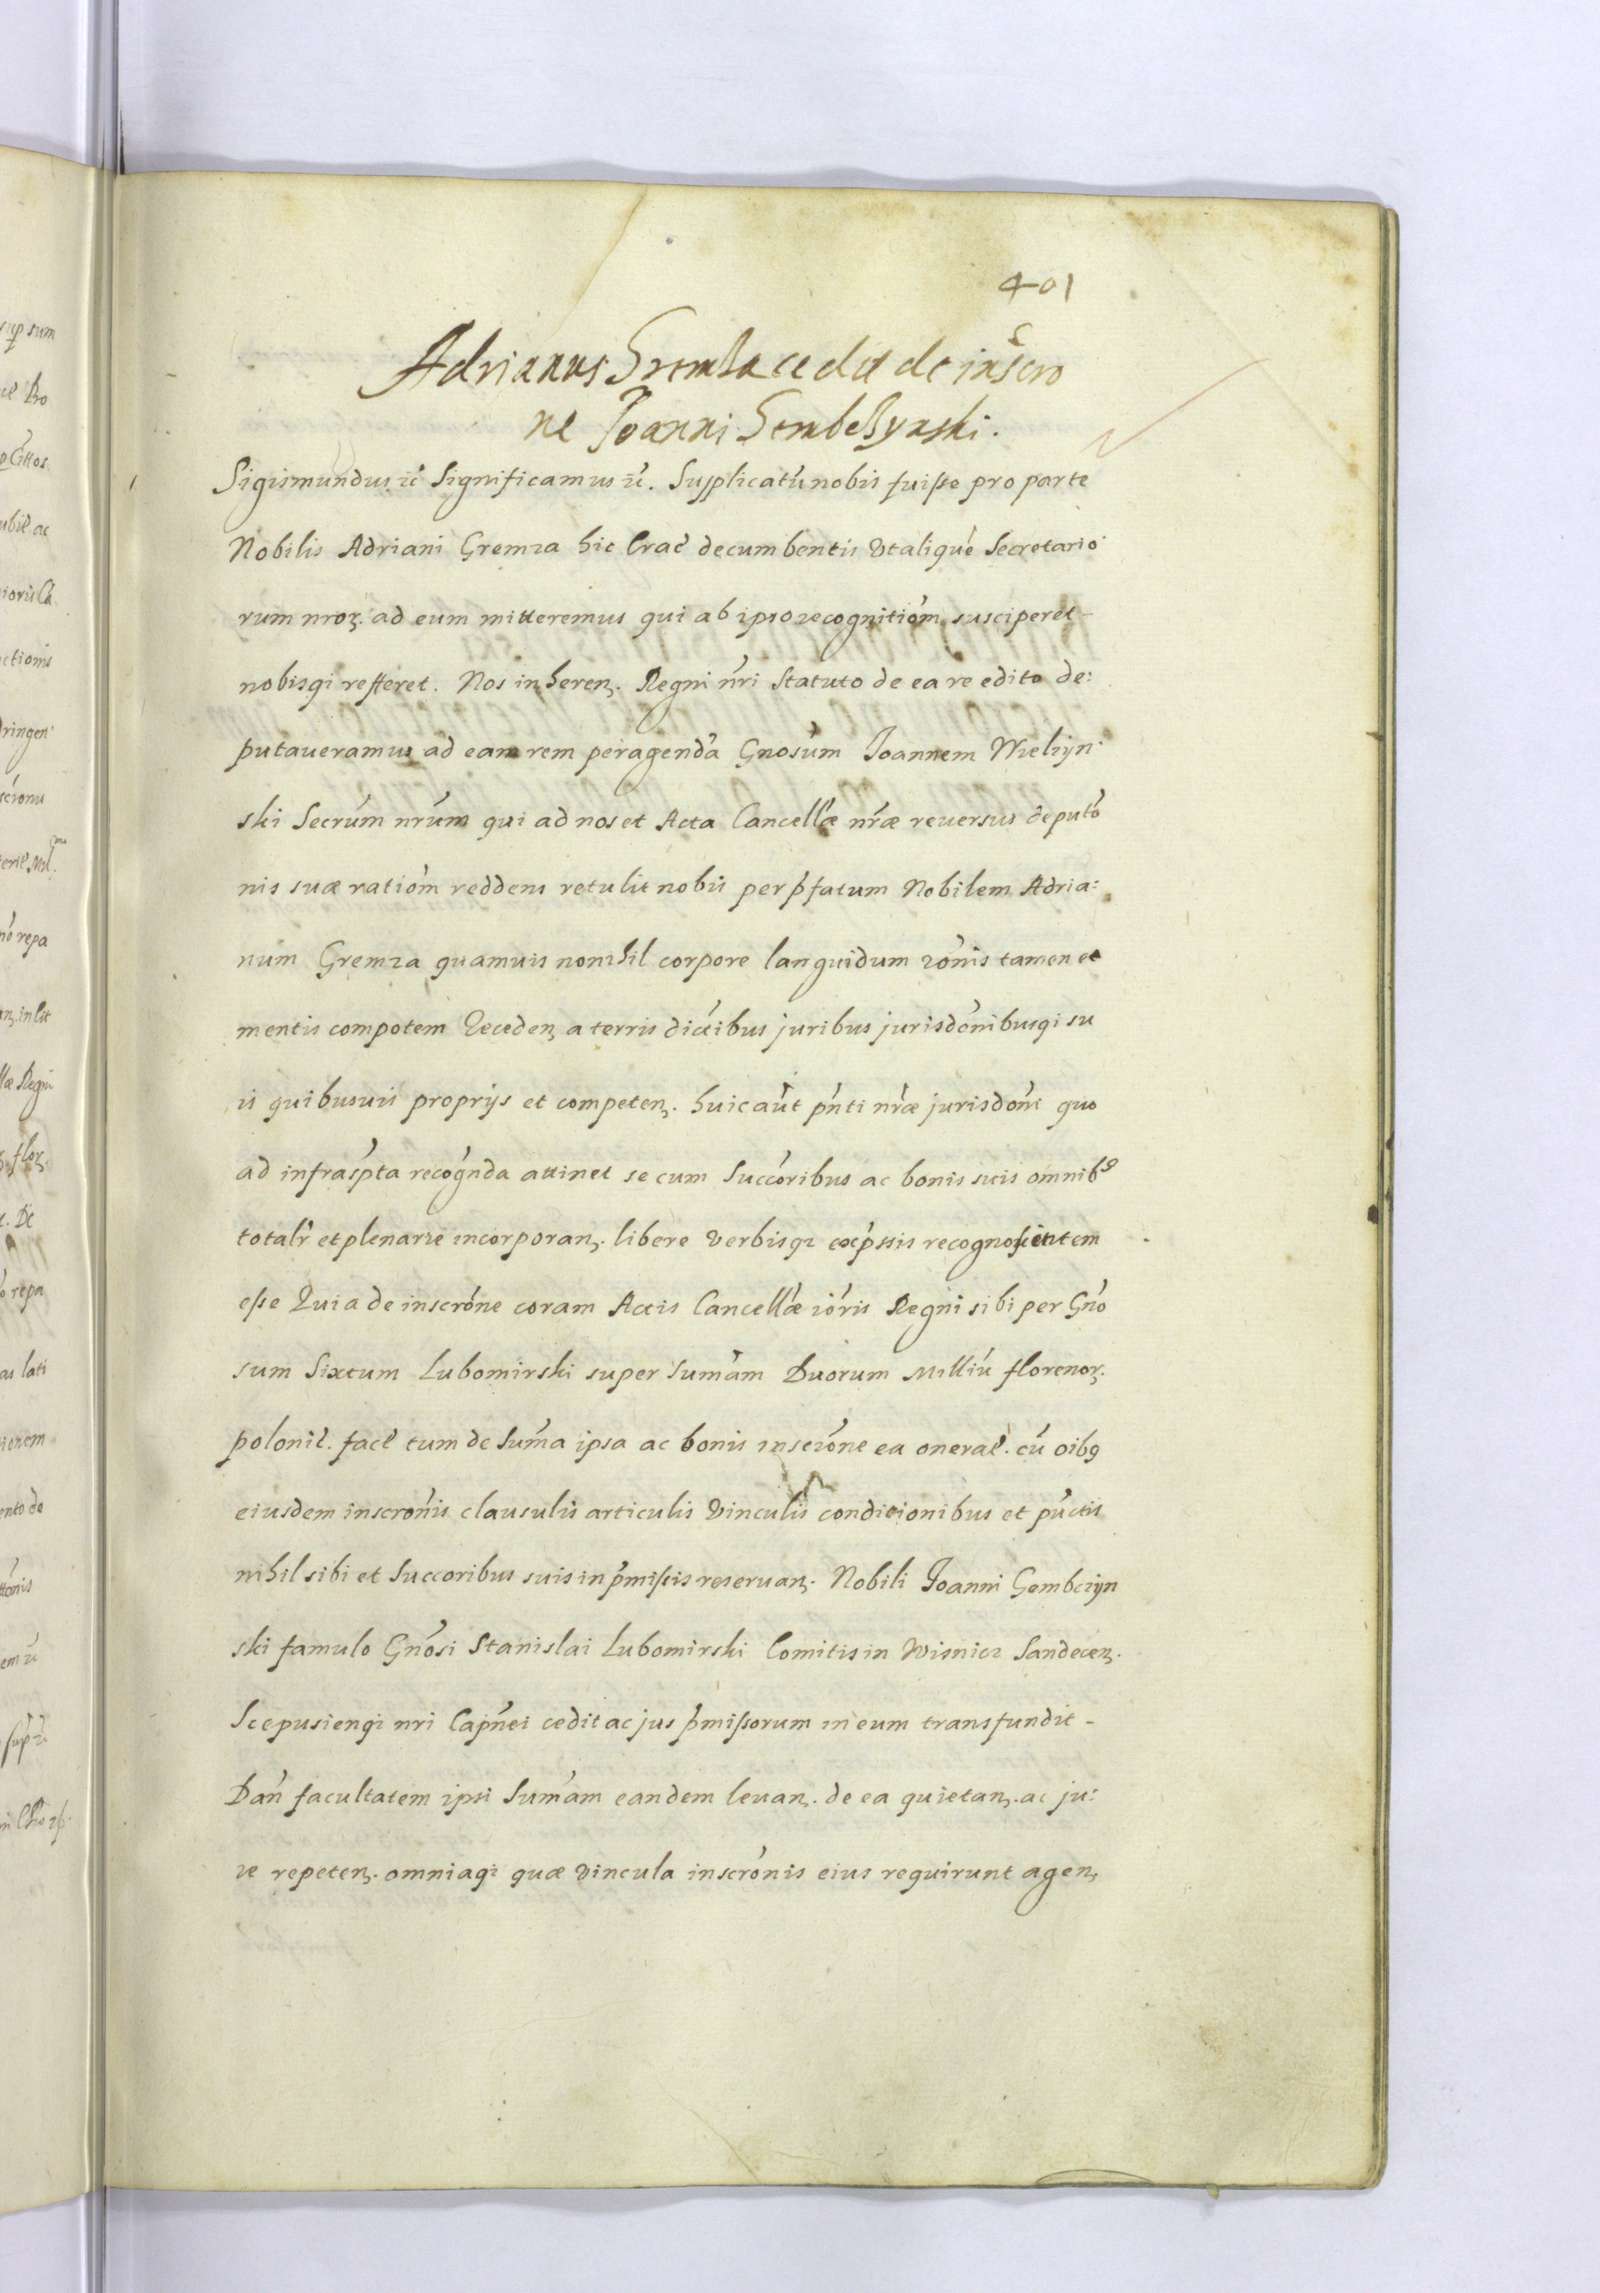 401
Adrianus Gremza cedit de inscro
ne Joanni Gembczynski.
Sigismundus ꝛc̃ Significamus ꝛc̃. Supplicatũ nobis fuiſse pro parte
Nobilis Adriani Gremza hic Crac̃ decumbentis Vt aliquẽ Secretario
rum nroꝝ. ad eum mitteremus qui ab ipso recognitiom̃ susciperet -
nobisqꝫ refferet. Nos inherenꝫ. Regni nr̃i Statuto de ea re edito de:
putaueramus ad eam rem peragendã Gnosũm Joannem Wielzyn
ski Secrũm nrũm qui ad nos et Acta Cancellæ nr̃æ reuersus deputõ
nis suæ ratiom̃ reddens retulit nobis per p̃fatum Nobilem Adria:
num Gremza quamuis nonihil corpore languidum rõnis tamen et
mentis compotem Recedenꝫ a terris distc̃ibus juribus jurisdõnibusqꝫ su
is quibusuis proprijs et competenꝫ. huic aũt pñti nr̃æ jurisdõni quo
ad infrasp̃ta recog̃nda attinet se cum Succõribus ac bonis suis omnibꝰ
totalr̃ et plenarie incorporanꝫ. libere Verbisqꝫ exp̃ssis recognoſcentem
eſse Quia de inscrõne coram Actis Cancellæ̃ iõris Regni sibi per Gñо
sum Sixtum Lubomirski super Sumãm Duorum Milliũ florenoꝝ.
poloniĉ. fact̃ tum de Sum̃a ipsa ac bonis inscrõne ea onerat̃. cũ oibꝰ
eiusdem inscrõnis clausulis articulis Vinculis conditionibus et pũctis
nihil sibi et Succoribus suis in p̃miſsis reseruanꝫ. Nobili Joanni Gembczyn
ski famulo Gñosi Stanislai Lubomirski Comitis in Wisnicz Sandecenꝫ.
Scepusienqꝫ nri Capñei cedit ac jus p̃miſsorum in eum transfundit -
Dañ facultatem ipsi Sumãm eandem leuanꝫ. de ea quietanꝫ. ac ju:
re repetenꝫ. omniaqꝫ quæ Vincula inscrõnis eius requirunt agenꝫ